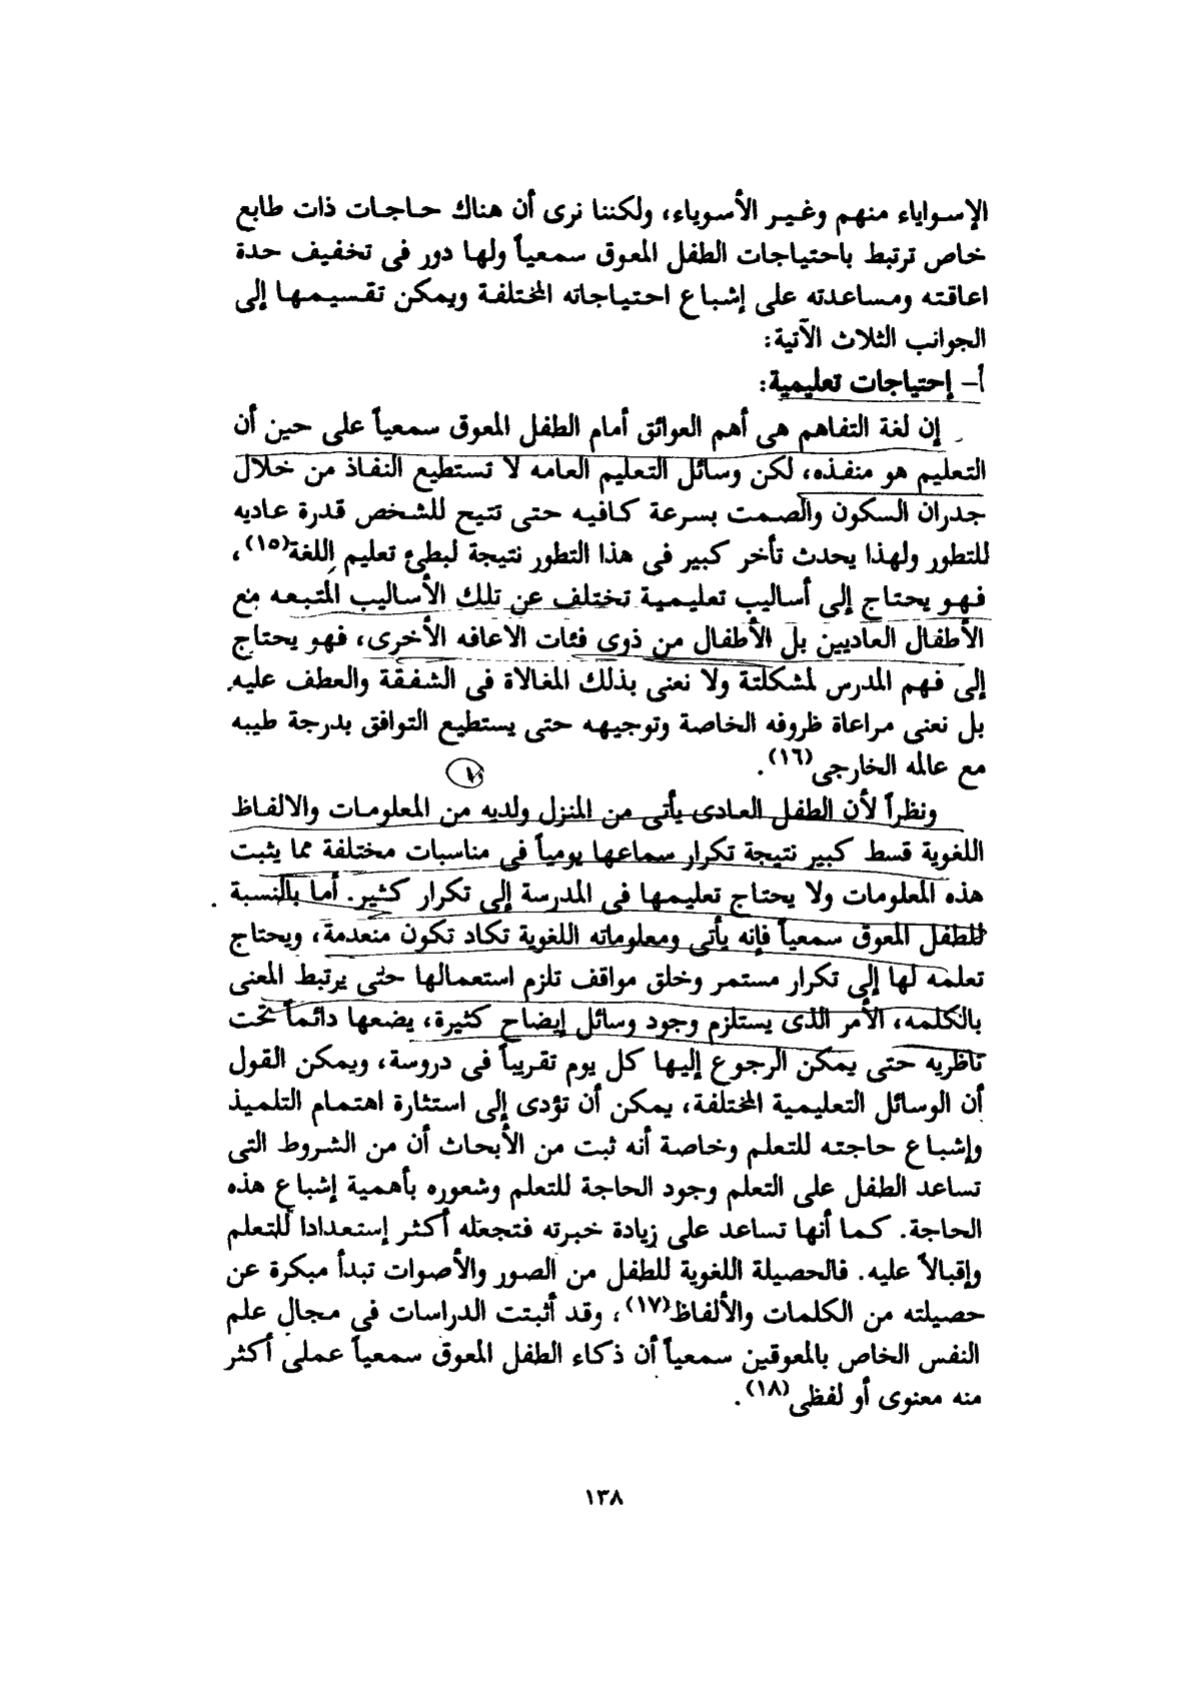 الإسواياء منهم وغير الأسوياء، ولكننا نرى أن هناك حاجات ذات طابع
خاص ترتبط باحتياجات الطفل المعوق سمعياً ولها دور فى تخفيف حدة
اعاقته ومساعدته على إشباع احتياجاته المختلفة ويمكن تقسيمها إلى
الجوانب الثلاث الآتية:
أ– إحتياجات تعليمية:
إن لغة التفاهم هى أهم العوائق أمام الطفل المعوق سمعياً على حين أن
التعليم هو منفذه، لكن وسائل التعليم العامه لا تستطيع النفاذ من خلال
جدران السكون والصمت بسرعة كافيه حتى تتيح للشخص قدرة عاديه
للتطور ولهذا يحدث تأخر كبير فى هذا التطور نتيجة لبطئ تعليم اللغة(١٥)،
فهو يحتاج إلى أساليب تعليمية تختلف عن تلك الأساليب المتبعه مع
الأطفال العاديين بل الأطفال من ذوى فئات الاعاقه الأخرى، فهو يحتاج
إلى فهم المدرس لمشكلتة ولا نعنى بذلك المغالاة فى الشفقة والعطف عليه.
بل نعنى مراعاة ظروفه الخاصة وتوجيهه حتى يستطيع التوافق بدرجة طيبه
مع عالمه الخارجى(١٦).
ونظراً لأن الطفل العادى يأتى من المنزل ولديه من المعلومات والالفاظ
اللغوية قسط كبير نتيجة تكرار سماعها يومياً فى مناسبات مختلفة مما يثبت
هذه المعلومات ولا يحتاج تعليمها فى المدرسة إلى تكرار كثير. أما بالنسبة
للطفل المعوق سمعياً فإنه يأتى ومعلوماته اللغوية تكاد تكون منعدمة، ويحتاج
تعلمه لها إلى تكرار مستمر وخلق مواقف تلزم استعمالها حتى يرتبط المعنى
بالكلمه، الأمر الذى يستلزم وجود وسائل إيضاح كثيرة، يضعها دائماً تحت
ناظريه حتى يمكن الرجوع إليها كل يوم تقريباً فى دروسة، ويمكن القول
أن الوسائل التعليمية المختلفة، يمكن أن تؤدى إلى استثارة اهتمام التلميذ
وإشباع حاجته للتعلم وخاصة أنه ثبت من الأبحاث أن من الشروط التى
تساعد الطفل على التعلم وجود الحاجة للتعلم وشعوره بأهمية إشباع هذه
الحاجة. كما أنها تساعد على زيادة خبرته فتجعله أكثر إستعدادا للتعلم
وإقبالاً عليه. فالحصيلة اللغوية للطفل من الصور والأصوات تبدأ مبكرة عن
حصيلته من الكلمات والألفاظ(١٧)، وقد أثبتت الدراسات في مجال علم
النفس الخاص بالمعوقين سمعياً أن ذكاء الطفل المعوق سمعياً عملى أكثر
منه معنوى أو لفظى(١٨).
١٣٨